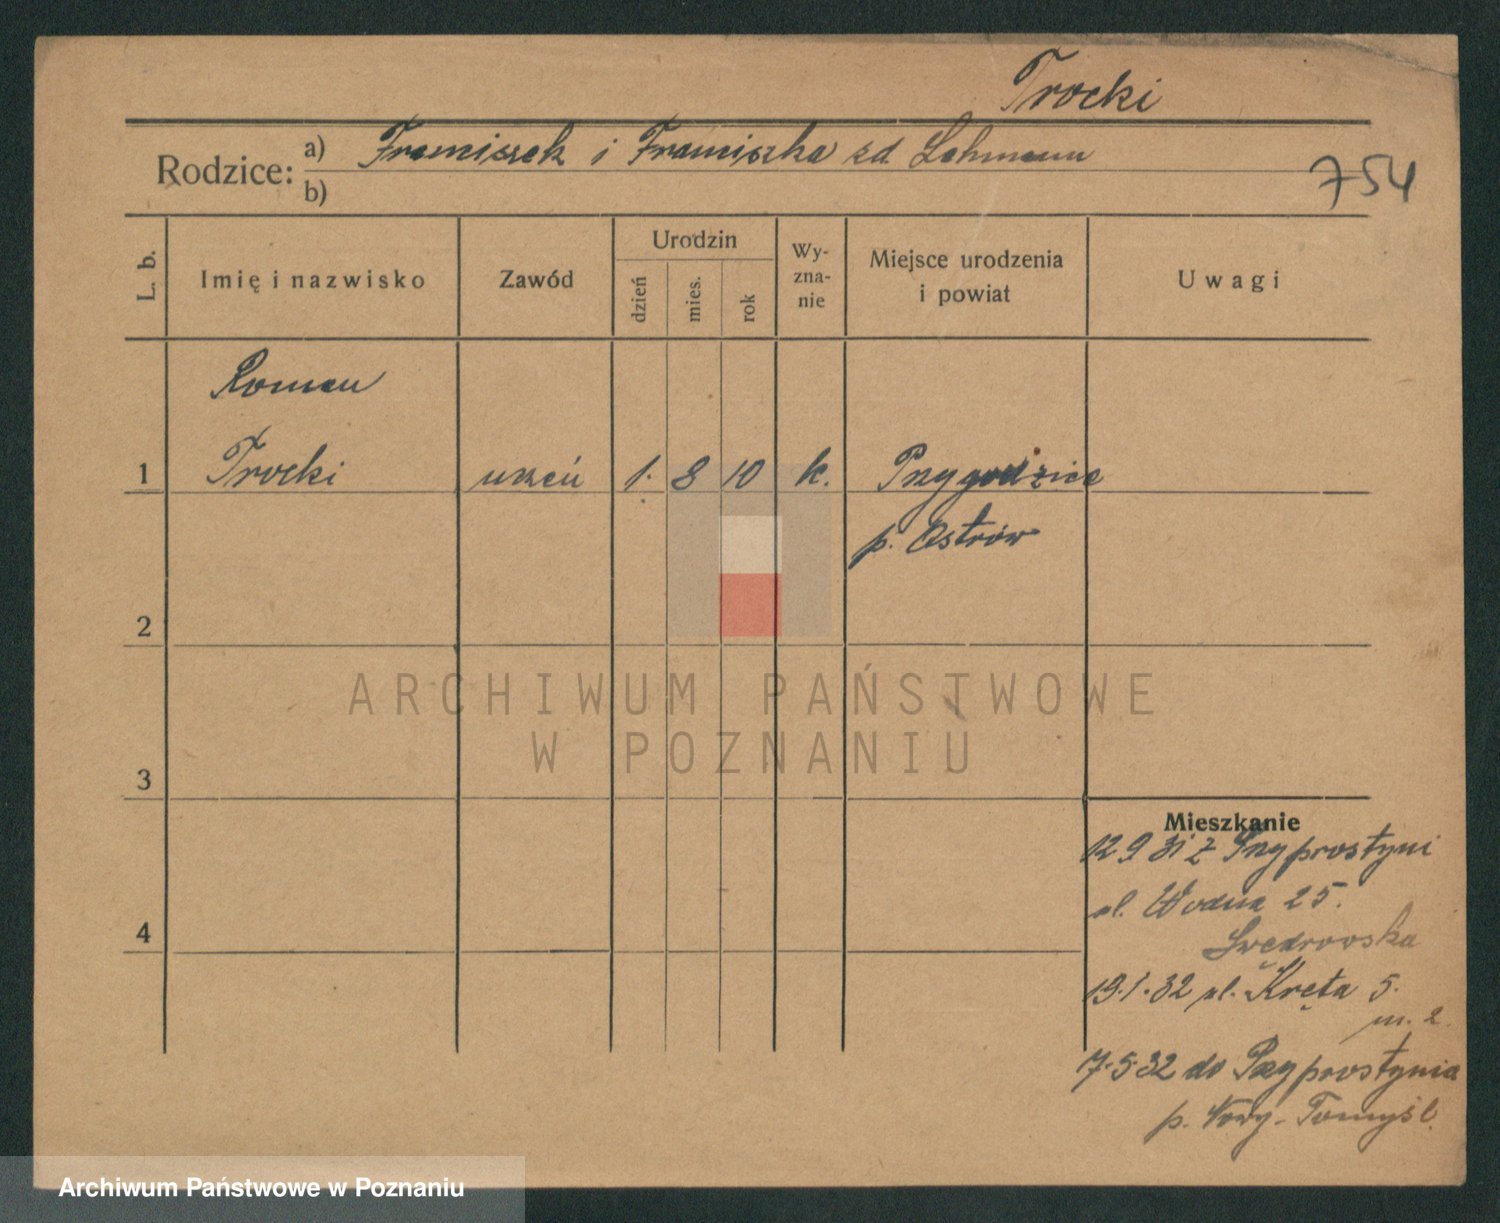 Trocki
Rodzice: a) Franciszek i Franciszka zd. Lehmann
b)
754
L. b.
Imię i nazwisko
Zawód
Urodzin
dzień
mies.
rok
Wy-
zna-
nie
Miejsce urodzenia
i powiat
Uwagi
Roman
1 Trocki uczeń 1. 8 10 k. Przygodzice
p. Ostrów
2
ARCHIWUM PAŃSTWOWE
W POZNANIU
3
Mieszkanie
12 9 31 z Przyprostyni
ul. Wodna 25.
4
19.1.32 ul. Kręta 5.
m. 2.
7.5.32 do Przyprostynia
p. Nowy-Tomyśl.
Archiwum Państwowe w Poznaniu